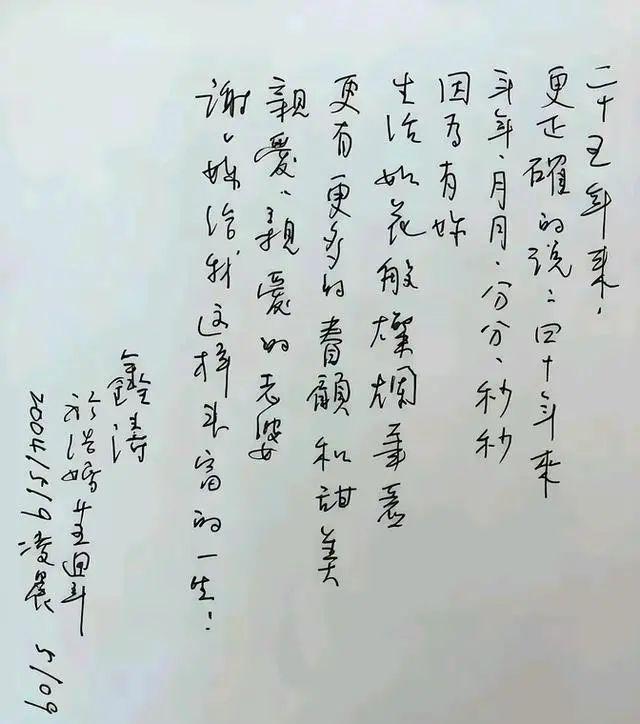 二十五年來，
更正確的說：四十年來
年年、月月、分分、秒秒
因為有妳
生活如花般燦爛
更有更多的眷顧和甜美
親愛、親愛的老婆
謝謝妳給我这樣丰富的一生！
鑫濤
於結婚廿五週年
2004/5/9凌晨 5/09